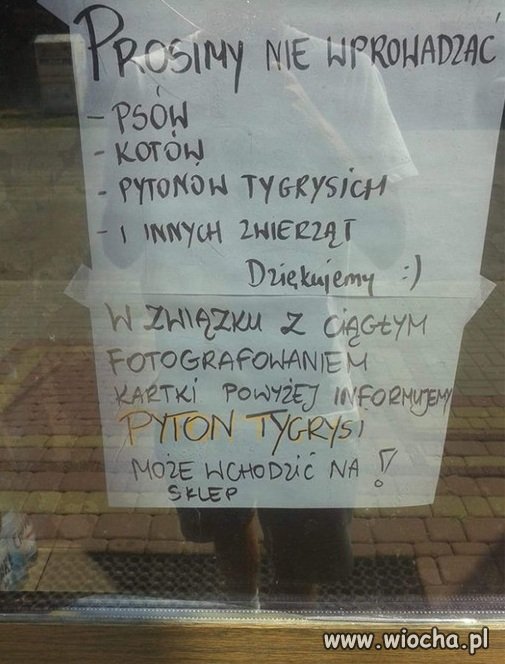 PROSIMY NIE WPROWADZAĆ
- PSÓW
- KOTÓW
- PYTONÓW TYGRYSICH
- I INNYCH ZWIERZĄT
Dziękujemy :)
W ZWIĄZKU Z CIĄGŁYM
FOTOGRAFOWANIEM
KARTKI POWYŻEJ INFORMUJEMY
PYTON TYGRYSI
MOŻE WCHODZIĆ NA !
SKLEP
www.wiocha.pl